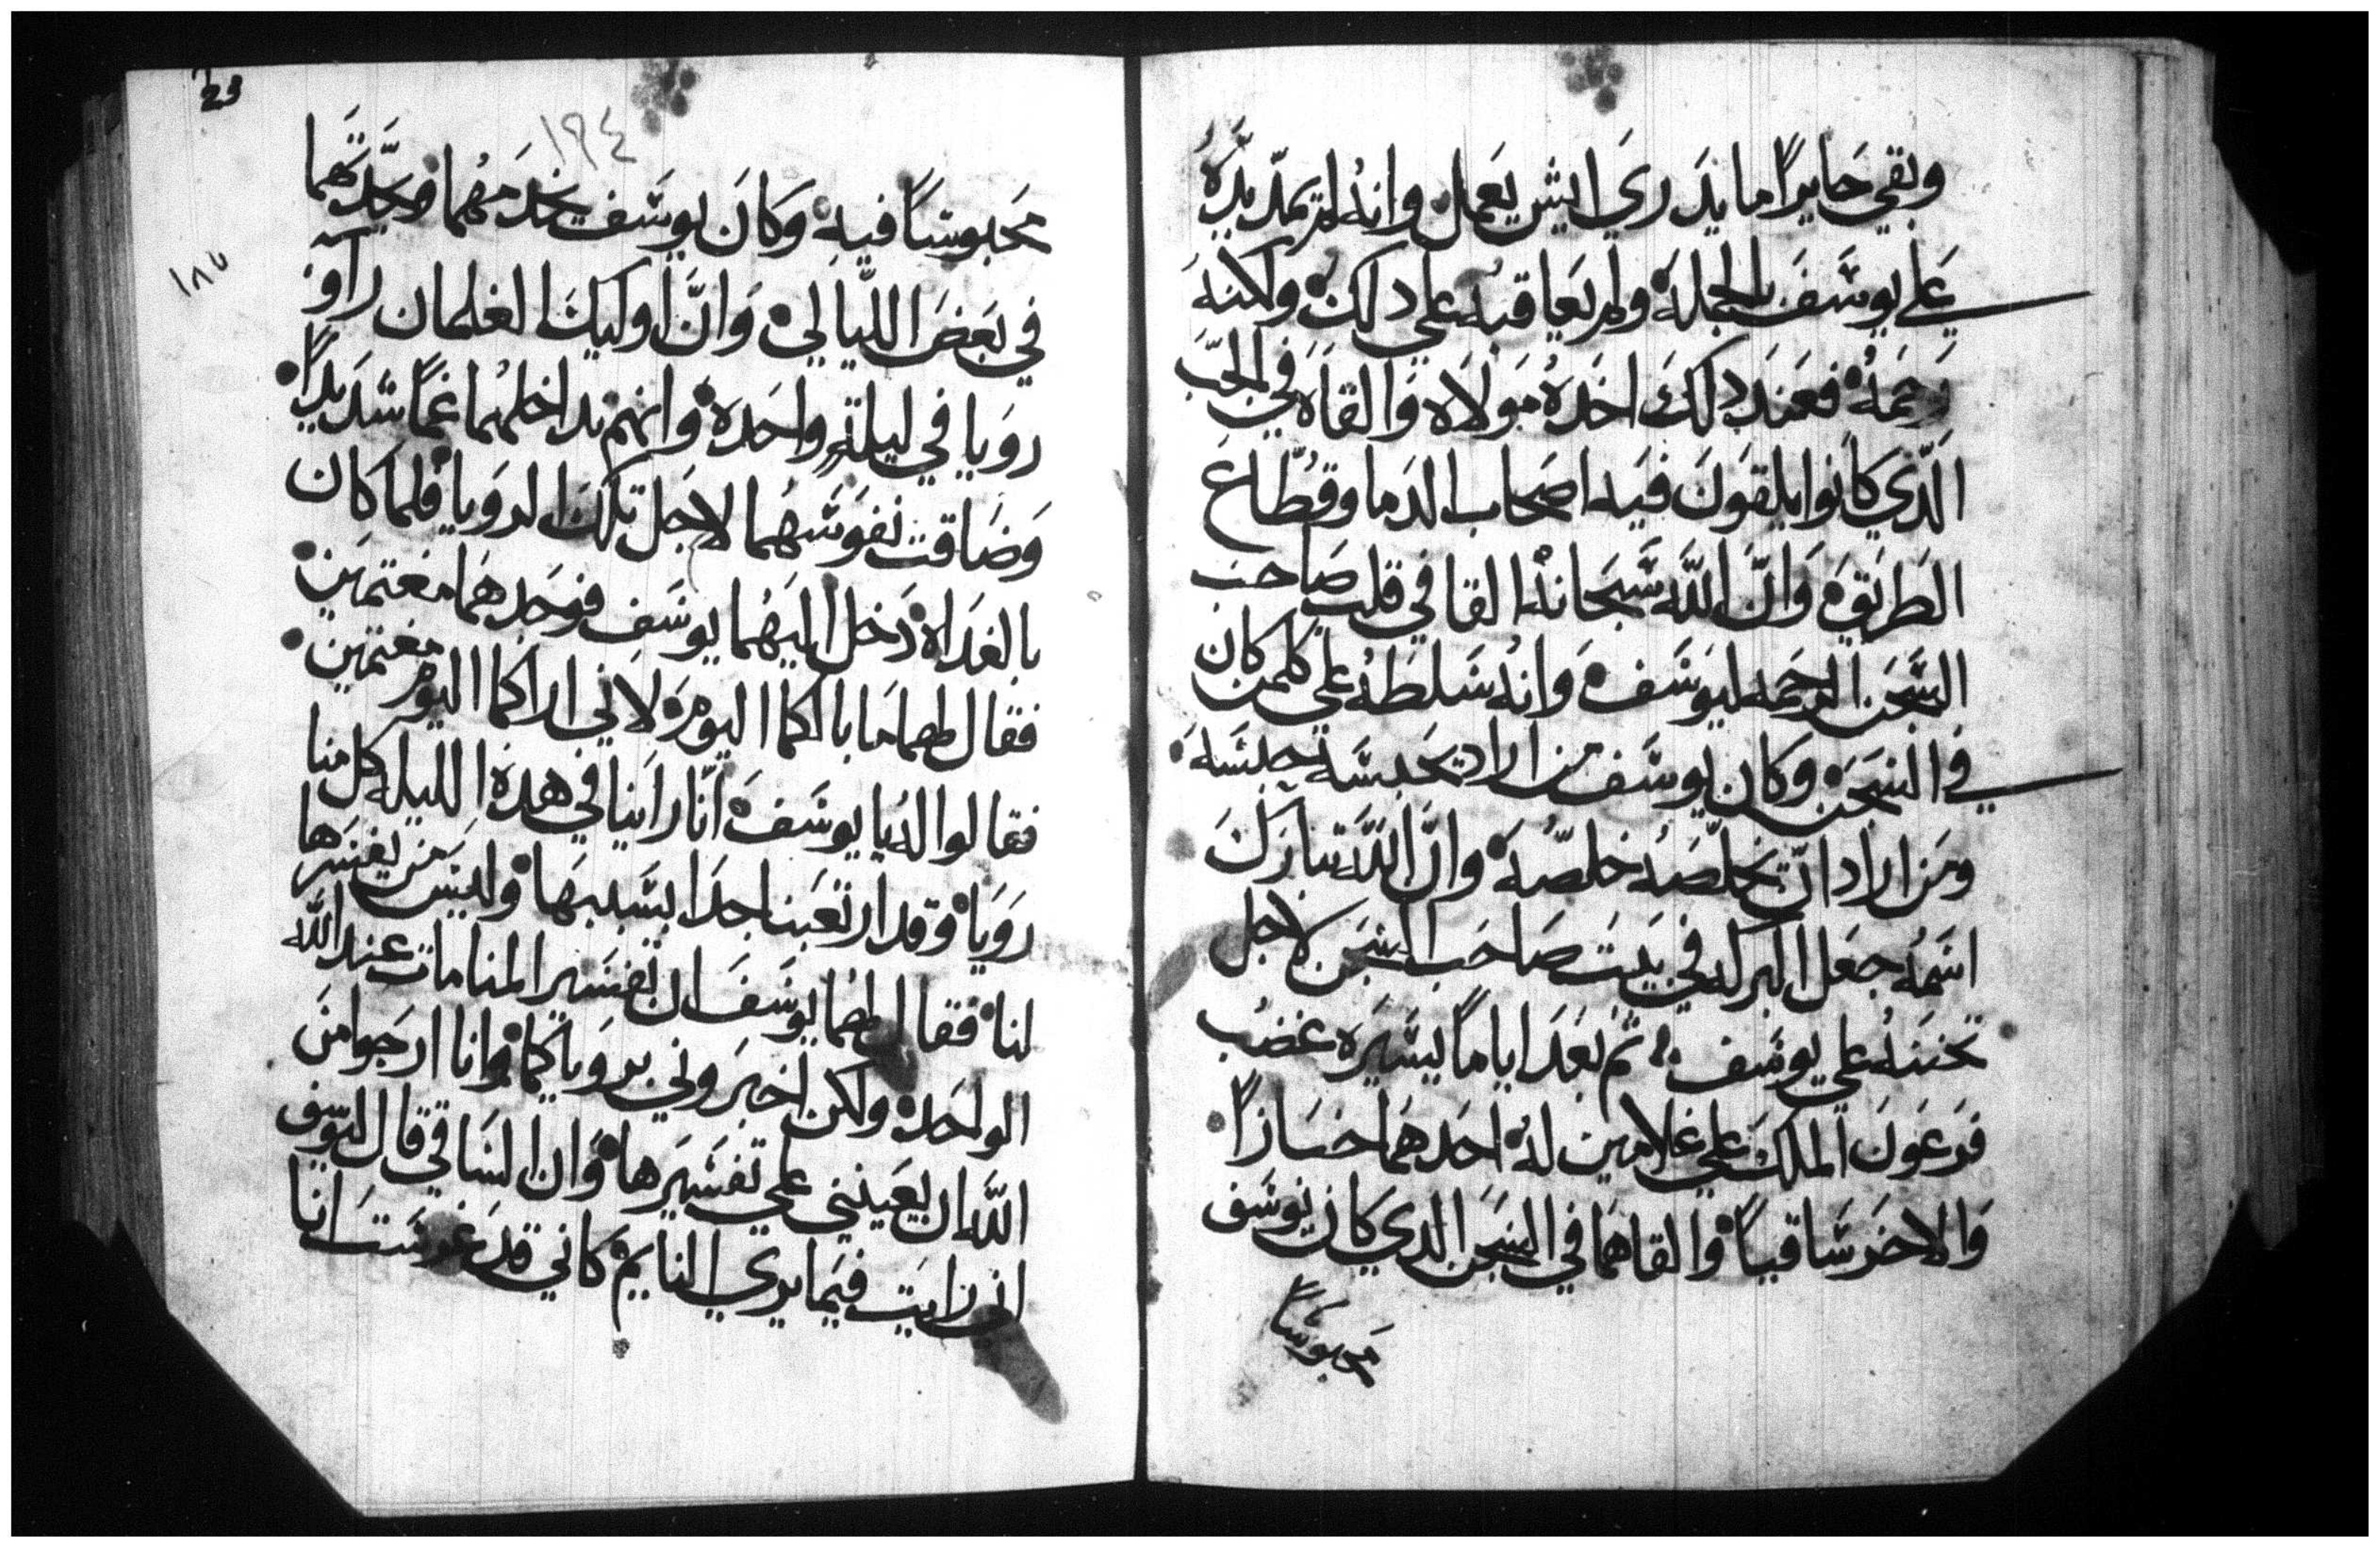 وبقي حايراً ما يدري ايش يعمل وانه لم يمد يده
علي يوسف بالجمله ولم يعاقبه علي دلك ولاكنه
رحمه فعند دلك اخده مولاه والقاه في الجب
الذي كانوا يلقون فيه اصحاب الدما وقطاع
الطريق وان الله سبحانه القا في قلب صاحب
السجن الرحمه ليوسف وانه سلطه علي كلمن كان
في السجن وكان يوسف من اراد يحبسه حبسه
ومن اراد ان يخلصه خلصه وان الله تبارك
اسمه جعل البركه في بيت صاحب السجن لاجل
تحننه علي يوسف ثم بعد اياماً يسيره غضب
فرعون الملك علي غلامين له احدهما خبازاً
والاخر ساقياً والقاهما في السجن الدي كان يوسف
محبوساً
23
١٩٤
١٨٧
محبوساً فيه وكان يوسف يخدمهما ويحدتهما
في بعض الليالي وان اوليك الغلمان راو
رويا في ليلة واحده وانهم تداخلهما غماً شديداً
وضاقت نفوسهما لاجل تلك الرويا فلما كان
بالغداه دخل اليهما يوسف فوجدهما مغتمين
فقال لهما ما بالكما اليوم لاني اراكما اليوم مغتمين
فقالوا له يا يوسف انا راينا في هده الليله كل منا
رويا وقد ارتعبنا جدا بسببها وليس من يفسرها
لنا فقال لهما يوسف ان تفسير المنامات عند الله
الواحد ولكن اخبروني برويا كما وانا ارجوا من
الله ان يعينني علي تفسيرها وان الساقي قال ليوسف
اني رايت فيما يري النايم كاني قد غرست انا